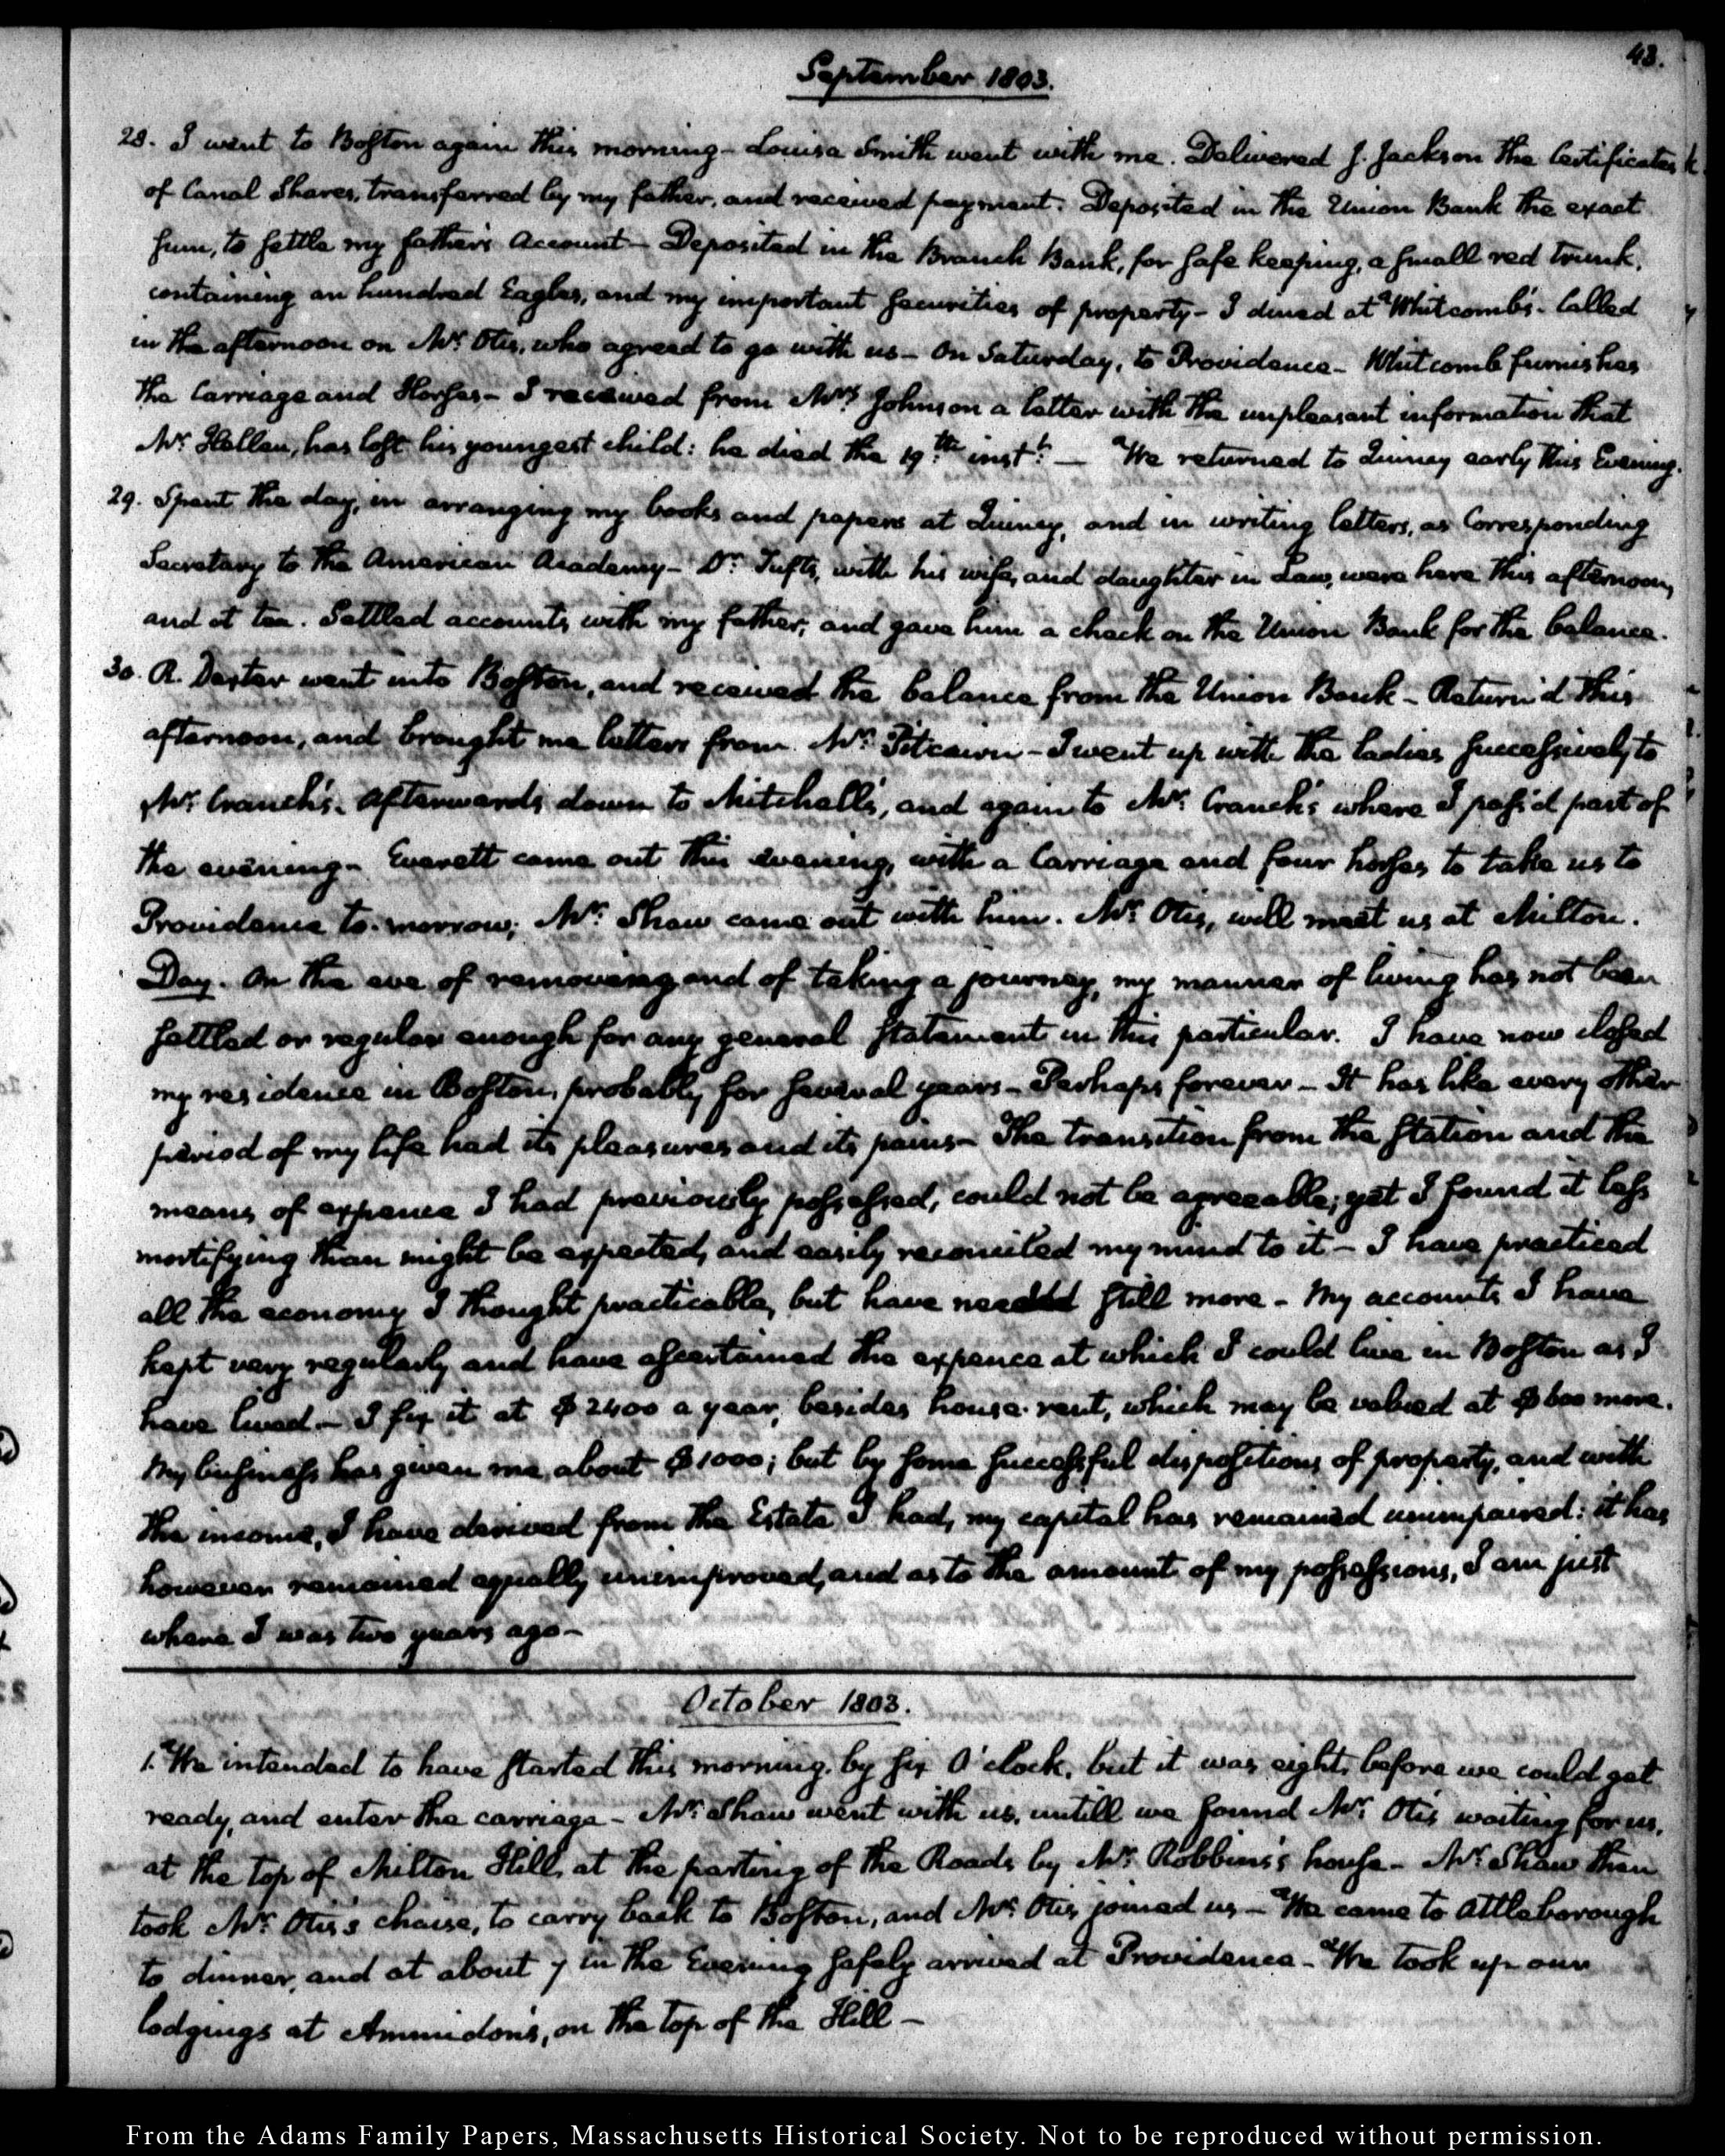 43.
September 1803.
28. I went to Boston again this morning - Louisa Smith went with me. Delivered J. Jackson the Certificates
of Canal Shares, transferred by my father, and received payment. Deposited in the Union Bank the exact
sum, to settle my father's Account - Deposited in the Branch Bank, for safe keeping, a small red trunk,
containing an hundred Eagles, and my important securities of property - I dined at Whitcomb's - Called
in the afternoon on Mr. Otis, who agreed to go with us - On Saturday, to Providence - Whitcomb furnishes
the Carriage and Horses - I received from Mrs. Johnson a letter with the unpleasant information that
Mr. Hellen, has lost his youngest child: he died the 19th. inst. - We returned to Quincy early this Evening.
29. Spent the day, in arranging my books and papers at Quincy, and in writing letters, as Corresponding
Secretary to the American Academy - Dr. Tufts, with his wife, and daughter in Law, were here this afternoon,
and at tea. Settled accounts with my father, and gave him a check on the Union Bank for the balance.
30. R. Dexter went into Boston, and received the balance from the Union Bank - Return'd this
afternoon, and brought me letters from Mr. Pitcairn - I went up with the ladies successively to
Mr. Cranch's. Afterwards down to Mitchell's, and again to Mr. Cranch's where I pass'd part of
the evening - Everett came out this evening, with a Carriage and four horses to take us to
Providence to-morrow; Mr. Shaw came out with him. Mr. Otis, will meet us at Milton.
Day. On the eve of removing and of taking a journey, my manner of living has not been
settled or regular enough for any general statement in this particular. I have now closed
my residence in Boston, probably for several years - Perhaps forever - It has like every other
period of my life had its pleasures and its pains - The transition from the station and the
means of expence I had previously possessed, could not be agreeable; yet I found it less
mortifying than might be expected, and easily reconciled my mind to it - I have practiced
all the economy I thought practicable, but have needed still more - My accounts I have
kept very regularly and have ascertained the expence at which I could live in Boston as I
have lived - I fix it at $2400 a year, besides house-rent, which may be valued at $600 more.
My business has given me about $1000; but by some successful dispositions of property, and with
the income, I have derived from the Estate I had, my capital has remained unimpaired: it has
however remained equally unimproved, and as to the amount of my possessions, I am just
where I was two years ago -
October 1803.
1. We intended to have started this morning by six O'clock, but it was eight, before we could get
ready, and enter the carriage - Mr. Shaw went with us, untill we found Mr. Otis waiting for us,
at the top of Milton Hill, at the parting of the Roads by Mr. Robbins's house - Mr. Shaw then
took Mr. Otis's chaise, to carry back to Boston, and Mr. Otis joined us - We came to Attleborough
to dinner, and at about 7 in the Evening safely arrived at Providence - We took up our
lodgings at Ammidon's, on the top of the Hill -
From the Adams Family Papers, Massachusetts Historical Society. Not to be reproduced without permission.